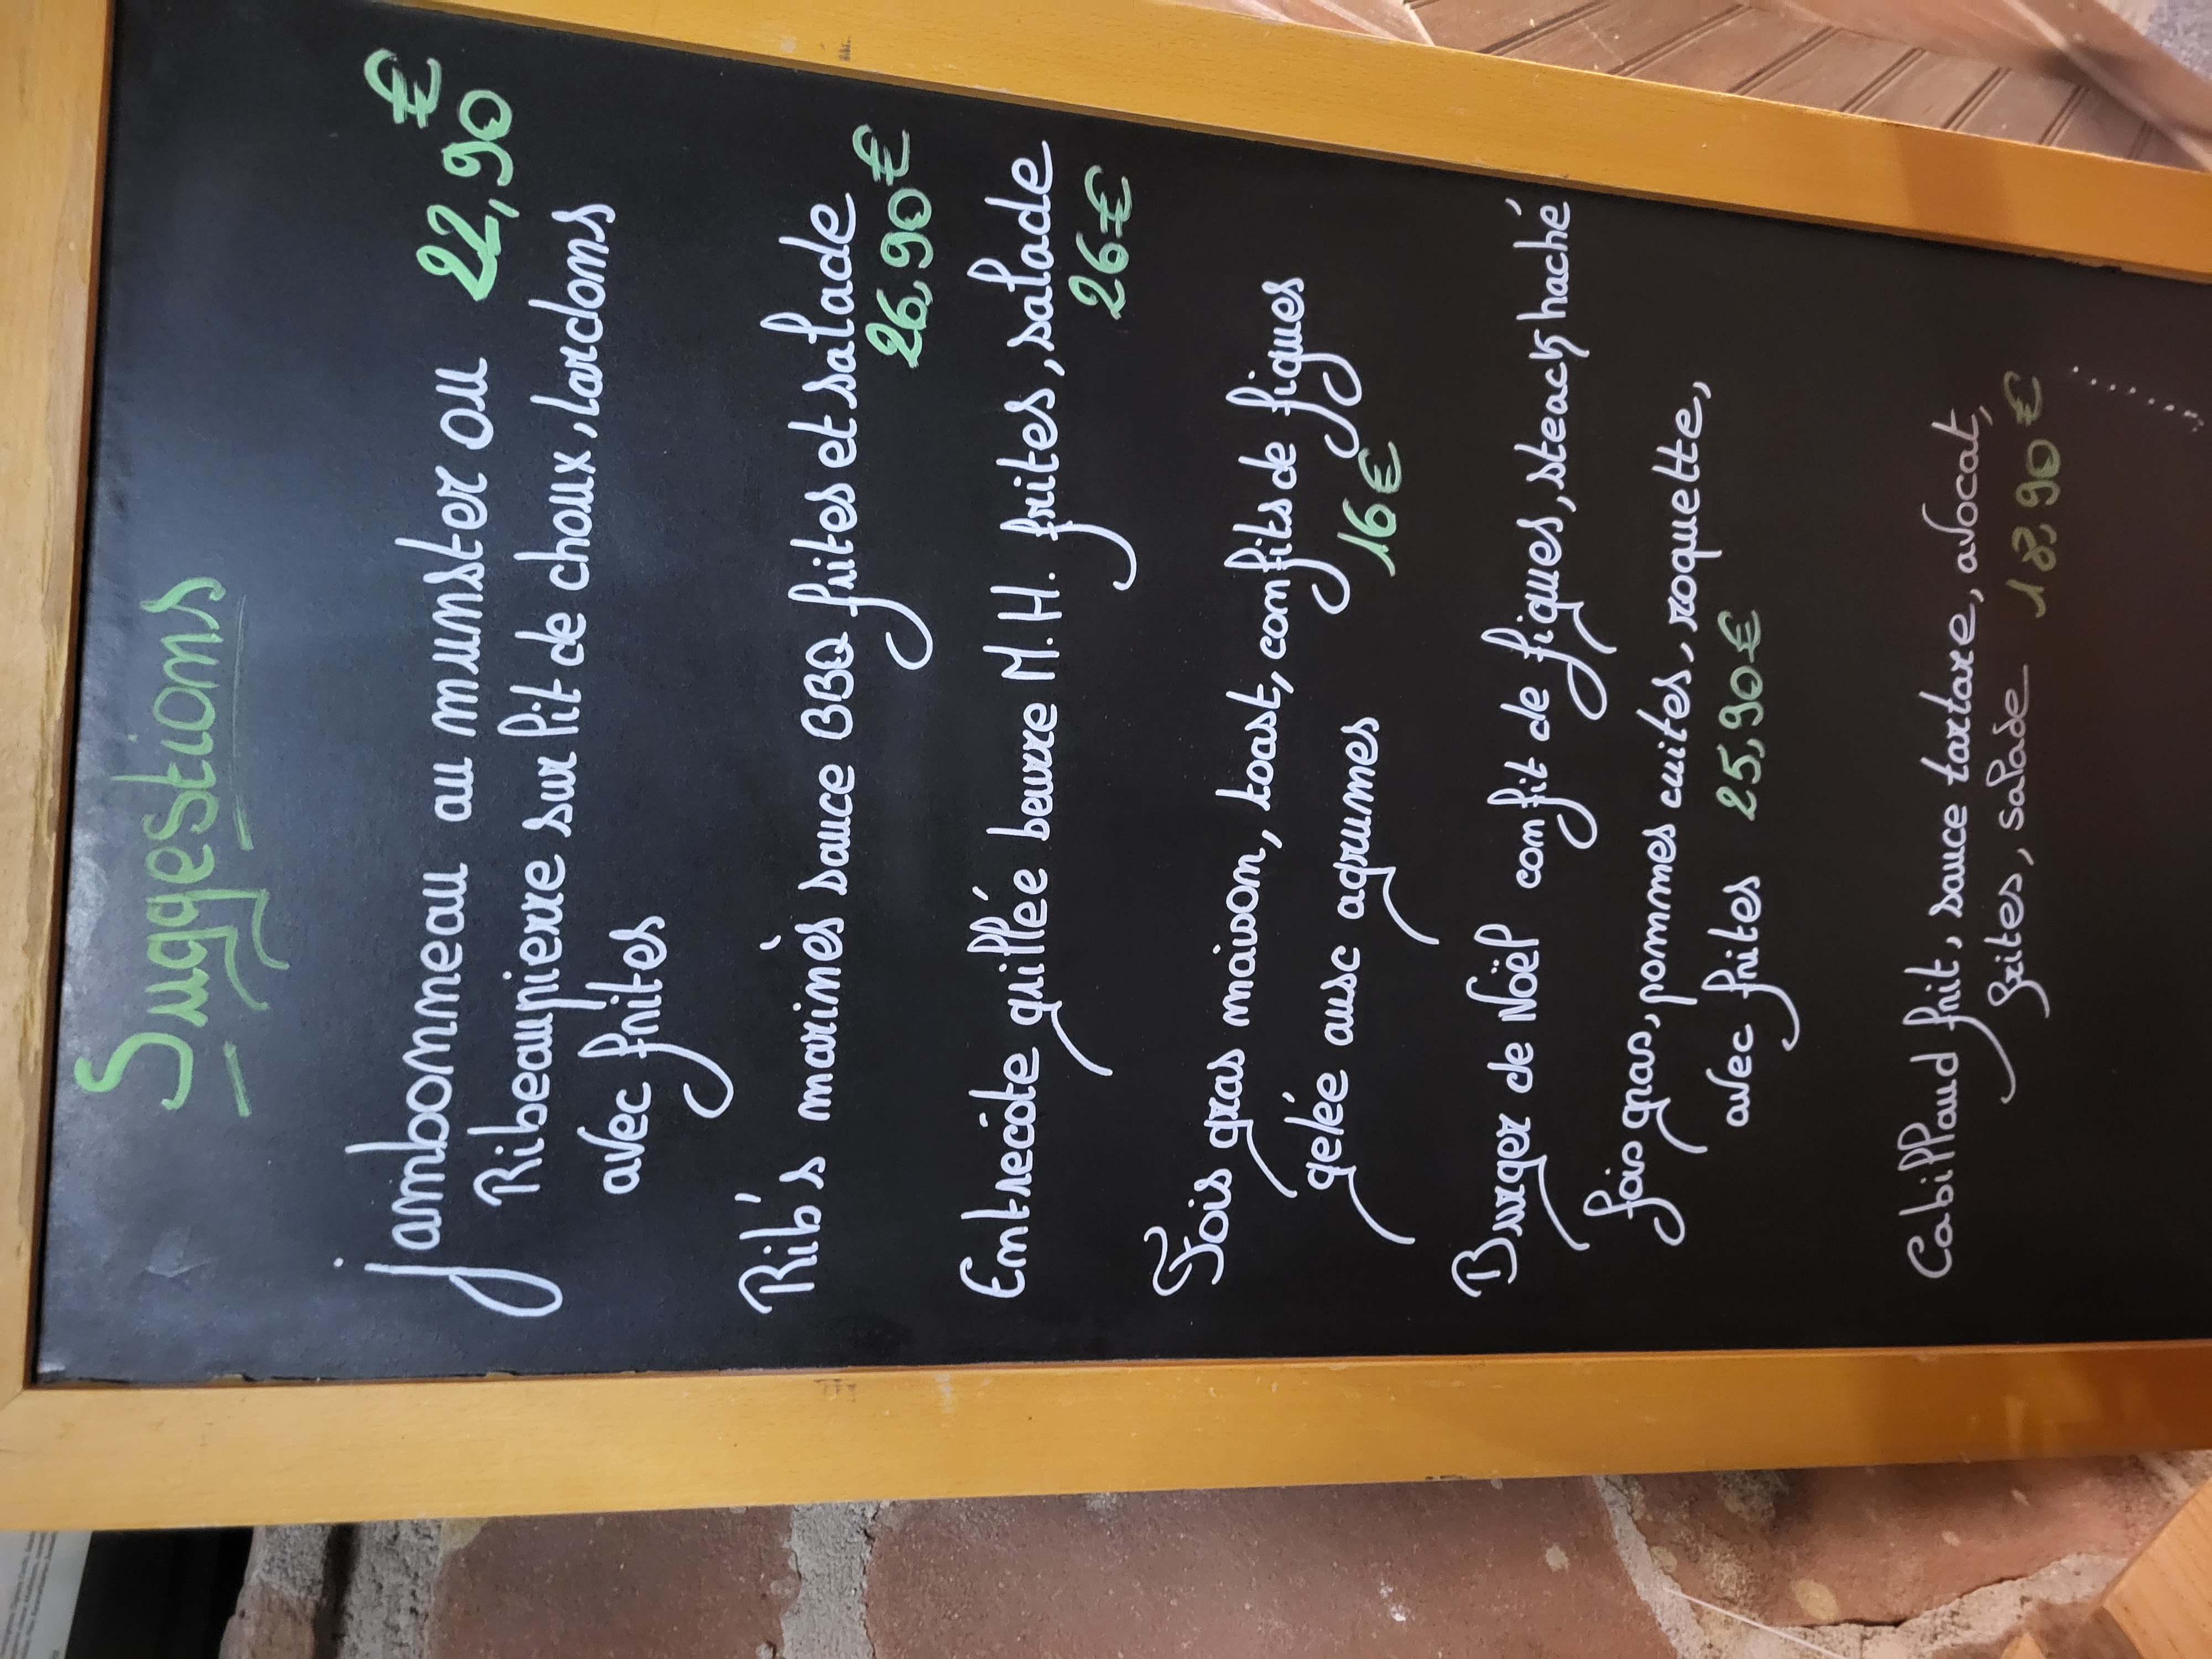 Suggestions
jambonneau au munster ou 22,90€
Ribeaupierre sur lit de choux, lardons
avec frites
Rib's marinès sauce BBQ frites et salade
26,90€
Entrecôte grillée beurre M.H. frites, salade
26€
Fois gras maison, toast, confits de figues
gelée aux agrumes 16€
Burger de Noël confit de figues, steack haché
fois gras, pommes cuites, roquette,
avec frites 25,90€
Cabillaud frit, sauce tartare, avocat,
frites, salade 18,90€